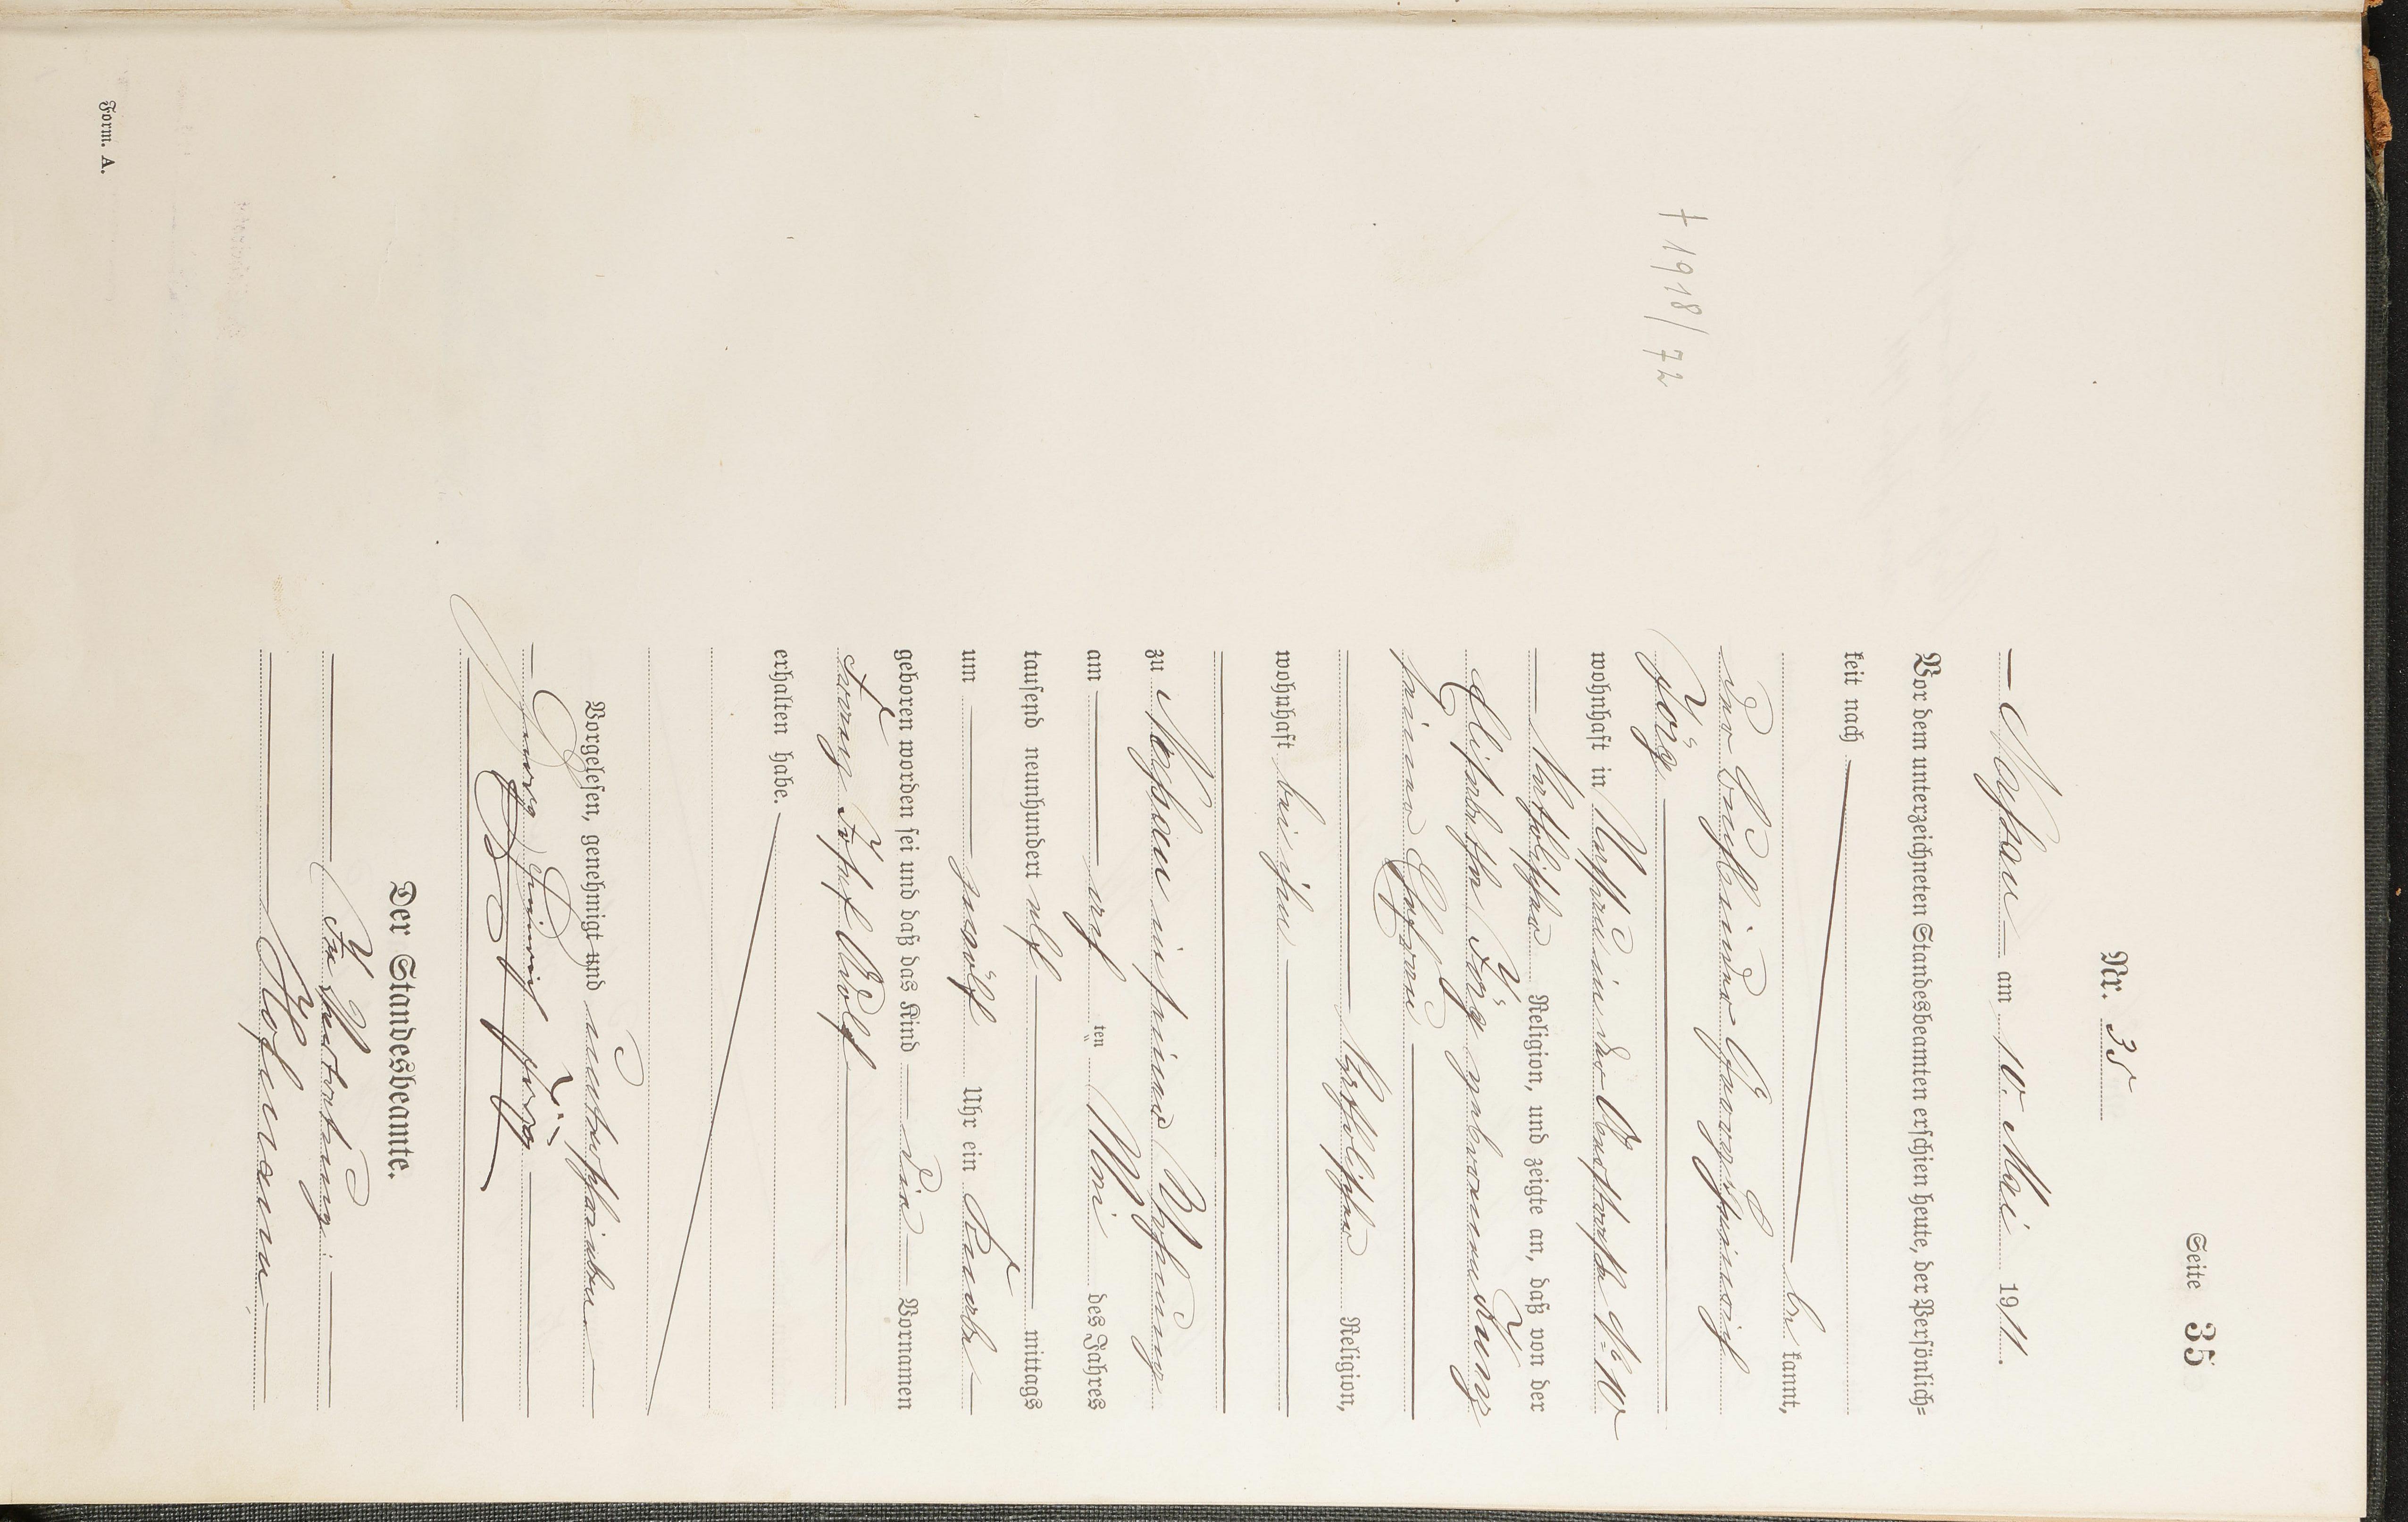 Seite 35
Nr. 35
Nassau am 10. Mai 1911.
Vor dem unterzeichneten Standesbeamten erschien heute, der Persönlich=
keit nach
be kannt,
der Georg Heinrich
Jörg
wohnhaft in Nassau in der No 10
katholischer Religion, und zeigte an, daß von der
Elisabetha Jörg geborenen Kunz
seiner Ehefrau
katholischer Religion,
wohnhaft bei ihm
zu Nassau in seiner Wohnung
am ten Mai des Jahres
tausend neunhundert elf mittags
um zwölf Uhr ein Knabe
geboren worden sei und daß das Kind die Vornamen
Franz Josef Adolf
erhalten habe.
Vorgelesen, genehmigt und unterschrieben
Georg Heinrich Jörg
Der Standesbeamte.
In Vertretung:
† 1918/72
Form. A.